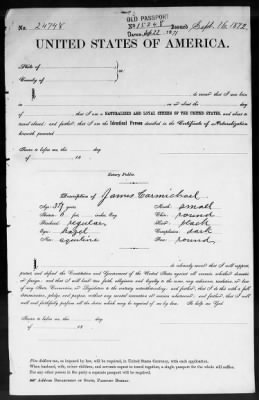 OLD PASSPORT
No. 24748
No 15248
Issued Sept. 16, 1872
Dated
UNITED STATES OF AMERICA.
State of
County of
I,
do swear that I was born
in
on or about the day
of
that I am a NATURALIZED AND LOYAL CITIZEN OF THE UNITED STATES, and about to
travel abroad; and further, that I am the Identical Person described in the Certificate of Naturalization
herewith presented.
Sworn to before me, this day
of 18
Notary Public.
Description of James Carmichael
Age: 39 years
Mouth: small
Stature: feet inches, Eng.
Chin: round
Forehead: regular
Hair: black
Eyes: hazel
Complexion: dark
Nose: aquiline
Face: round
I, do solemnly swear that I will support,
protect, and defend the Constitution and Government of the United States against all enemies, whether domestic
or foreign; and that I will bear true faith, allegiance, and loyalty to the same, any ordinance, resolution, or law
of any State, Convention, or Legislature to the contrary notwithstanding; and further, that I do this with a full
determination, pledge, and purpose, without any mental reservation or evasion whatsoever; and further, that I will
well and faithfully perform all the duties which may be required of me by law. So help me God.
Sworn to before me, this day
of 18
Five dollars tax, as imposed by law, will be required, in United States Currency, with each application.
When husband, wife, minor children, and servants expect to travel together, a single passport for the whole will suffice.
For any other person in the party a separate passport will be required.
Address DEPARTMENT OF STATE, PASSPORT BUREAU.